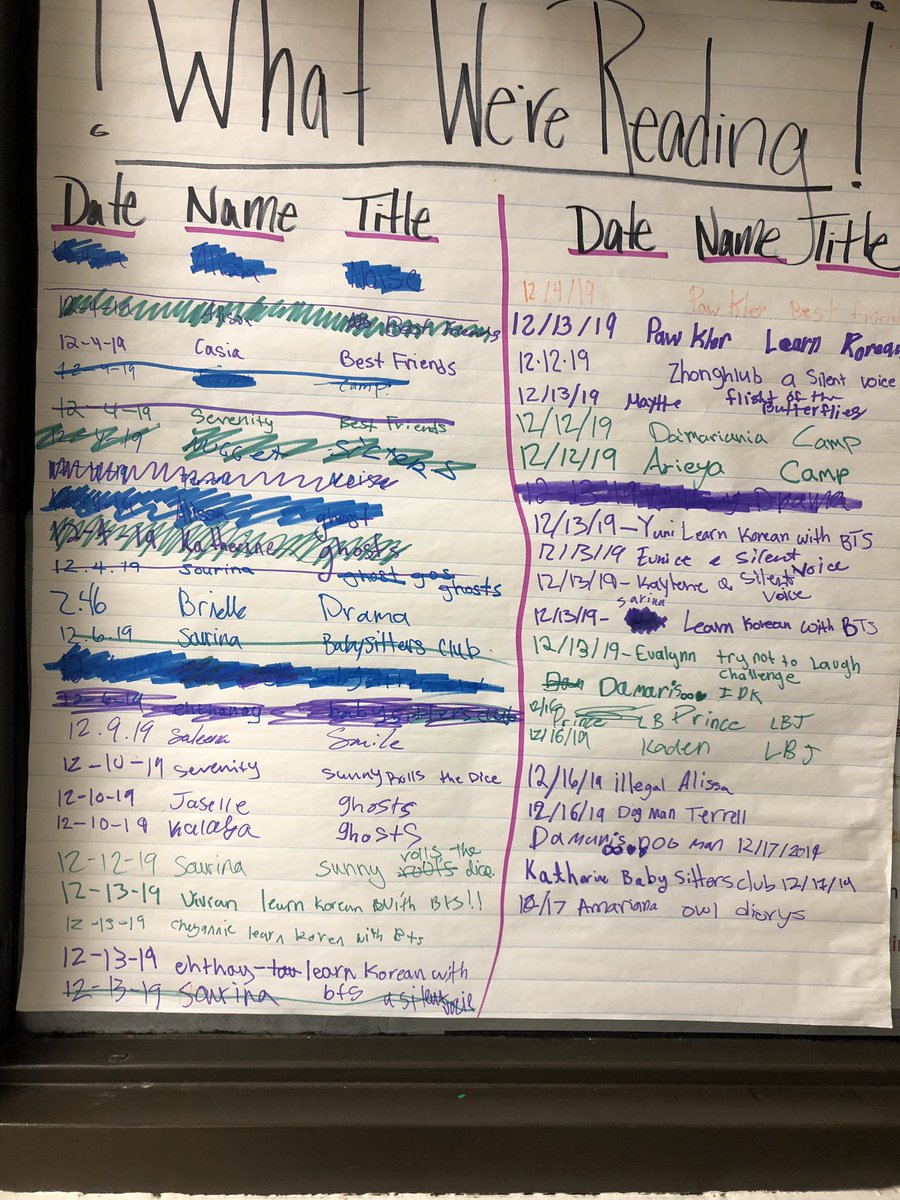 ! What We're Reading !
Date Name Title
Alissa Noise
Alissa Best Friends
12-4-19 Casia Best Friends
12-4-19 Camp
12-4-19 Serenity Best Friends
Sisters
ghost
12-4-19 Katherine ghosts
12.4.19 Sourina ghost gos ghosts
2.46 Brielle Drama
12.6.19 Sourina Babysitters club.
12-6-19 ehthanay babysitters club
12.9.19 Saleena Smile
12-10-19 Serenity Sunny Rolls the Dice
12-10-19 Jaselle ghosts
12-10-19 Kalaya ghosts
12-12-19 Sourina sunny rolls the dice.
12-13-19 Vivean learn Korean With BTS!!
12-13-19 Cheyannie learn Koren with Bts
12-13-19 ehthay learn Korean with
bts
12-13-19 Sourina a silent voice
Date Name Title
12/4/19 Paw Kler Best frien
12/13/19 Paw Kler Learn Korean
12.12.19 Zhonghlub a Silent voice
12/13/19 Maythe flight of the
Butterflies
12/12/19 Daimariania Camp
12/12/19 Arieya Camp
12-13-19 Drama
12/13/19-Yuni Learn Korean with BTS
12/13/19 Eunice a Silent Voice
12/13/19-Kaylene a Silent
Voice
12/13/19- Sarina Learn Korean with BTS
12/13/19-Evalynn try not to laugh
challenge
Damaris IDK
Prince LB Prince LBJ
12/16/19 Kaden LBJ
12/16/19 illegal Alissa
12/16/19 Dog man Terrell
Damaris DOG man 12/17/2019
Katharine Baby Sitters club 12/17/19
12/17 Amariana owl diarys